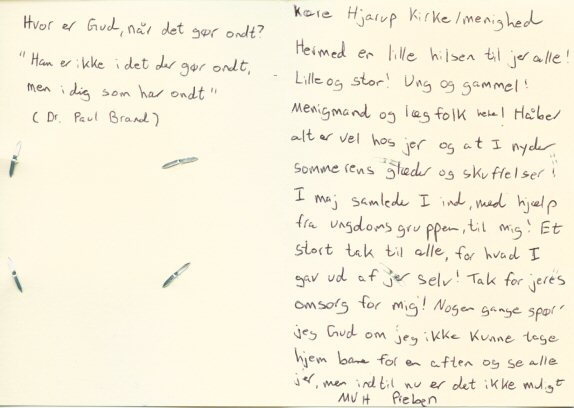 Hvor er Gud, når det gør ondt?
"Han er ikke i det der gør ondt,
men i dig som har ondt"
(Dr. Paul Brand)
Kære Hjarup Kirke/menighed
Hermed en lille hilsen til jer alle!
Lille og stor! Ung og gammel!
Menigmand og lægfolk hehe! Håber
alt er vel hos jer og at I nyder
sommerens glæder og skuffelser!
I maj samlede I ind, med hjælp
fra ungdomsgruppen, til mig! Et
stort tak til alle, for hvad I
gav ud af jer selv! Tak for jeres
omsorg for mig! Nogen gange spør'
jeg Gud om jeg ikke kunne tage
hjem bare for en aften og se alle
jer, men indtil nu er det ikke muligt
MVH